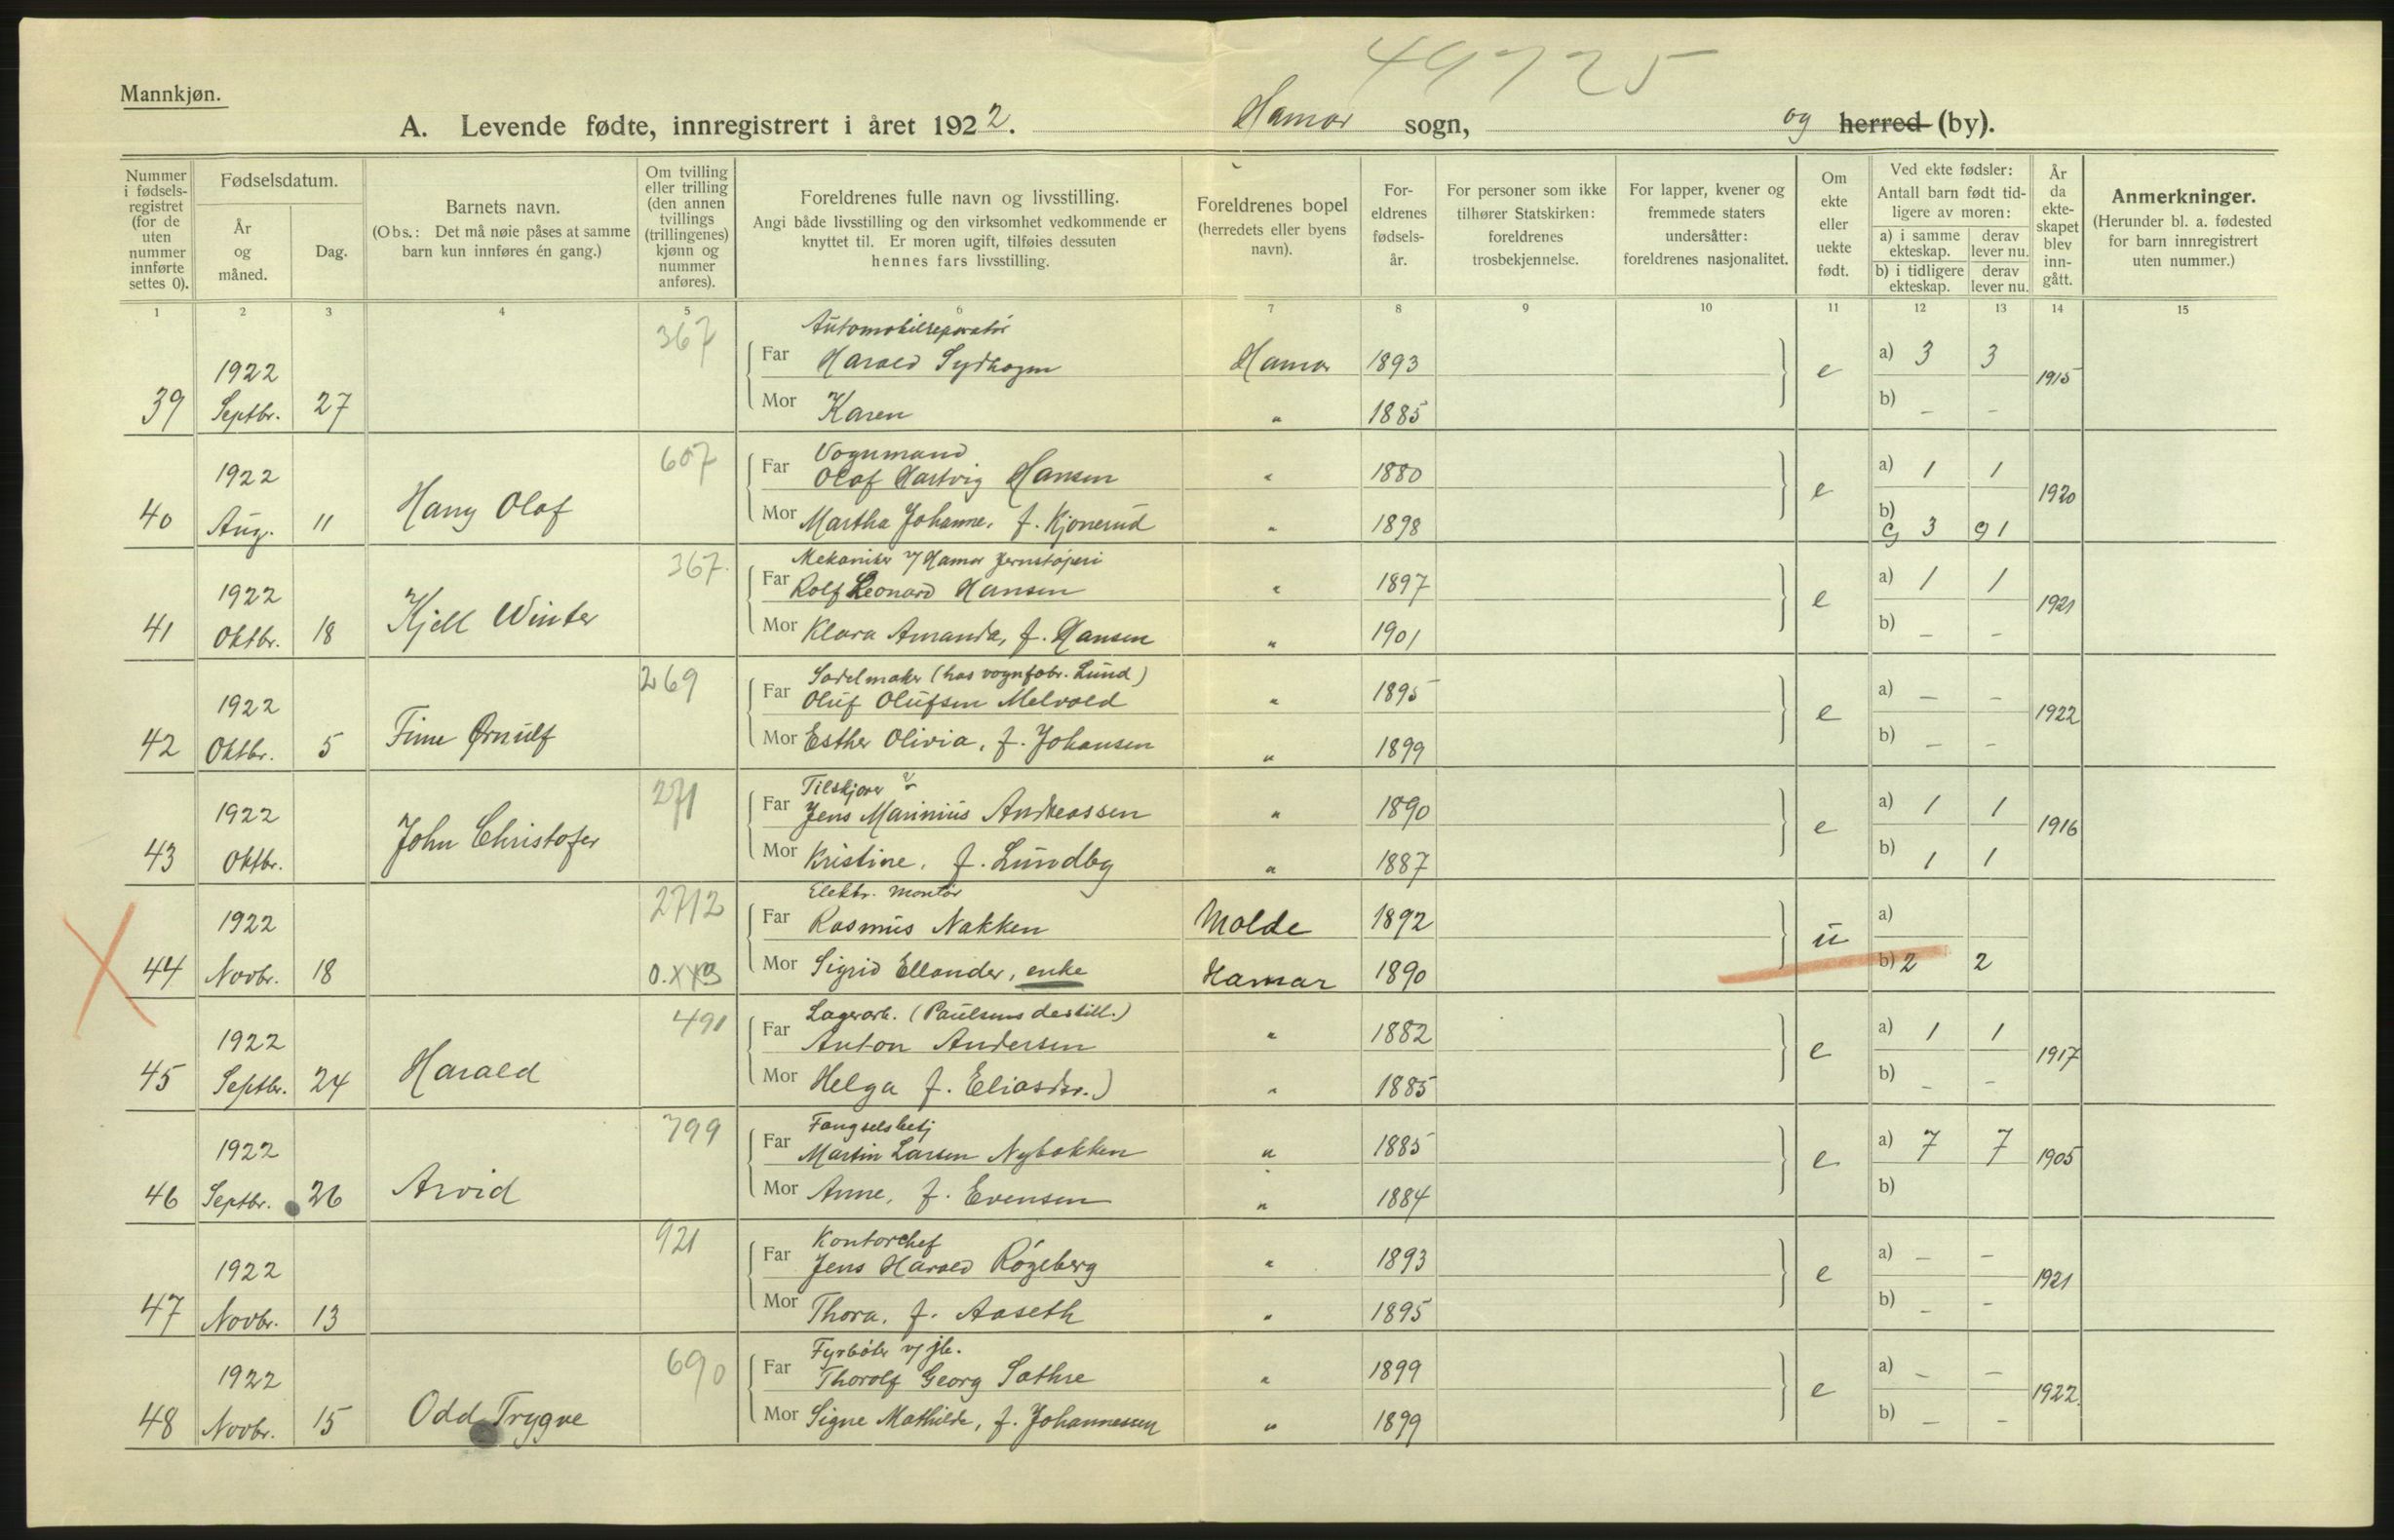 49725
Mannkjøn.
A. Levende fødte, innregistrert i året 1922. Hamar sogn, og herred (by).
Nummer i fødsels-registret (for de uten nummer innførte settes 0).
Fødselsdatum.
År og måned.
Dag.
Barnets navn.
(Obs.: Det må nøie påses at samme barn kun innføres én gang.)
Om tvilling eller trilling (den annen tvillings (trillingenes) kjønn og nummer anføres).
Foreldrenes fulle navn og livsstilling.
Angi både livsstilling og den virksomhet vedkommende er knyttet til. Er moren ugift, tilføies dessuten hennes fars livsstilling.
Foreldrenes bopel (herredets eller byens navn).
For-eldrenes fødsels-år.
For personer som ikke tilhører Statskirken: foreldrenes trosbekjennelse.
For lapper, kvener og fremmede staters undersåtter: foreldrenes nasjonalitet.
Om ekte eller uekte født.
Ved ekte fødsler: Antall barn født tid-ligere av moren:
a) i samme ekteskap. derav lever nu.
b) i tidligere ekteskap. derav lever nu.
År da ekte-skapet blev inn-gått.
Anmerkninger.
(Herunder bl. a. fødested for barn innregistrert uten nummer.)
1 2 3 4 5 6 7 8 9 10 11 12 13 14 15
367 Automobilreparatør
1922 Far Harald Sydhagen Hamar 1893 e a) 3 3 1915
39 Septbr. 27 Mor Karen " 1885 b) – –
607 Vognmand
1922 Far Olaf Hartvig Hansen " 1880 e a) 1 1 1920
40 Aug. 11 Hans Olaf Mor Martha Johanne, f. Kjonerud " 1898 b) g 3 g 1
367 Mekaniker v/ Hamar Jernstøperi
1922 Far Rolf Leonard Hansen " 1897 e a) 1 1 1921
41 Oktbr. 18 Kjell Winter Mor Klara Amanda, f. Hansen " 1901 b) – –
269 Sadelmaker (hos vognfabr. Lund)
1922 Far Oluf Olufsen Melvold " 1895 e a) – – 1922
42 Oktbr. 5 Finn Ørnulf Mor Esther Olivia, f. Johansen " 1899 b) – –
271 Tilskjærer
1922 Far Jens Marinius Andreassen " 1890 e a) 1 1 1916
43 Oktbr. John Christofer Mor Kristine, f. Lundby " 1887 b) 1 1
2712 Elektr. montør
1922 Far Rasmus Nakken Molde 1892 u a)
44 Novbr. 18 Mor Sigrid Ellander, enke Hamar 1890 b) 2 2
491 Lagerarb. (Paulsens destill.)
1922 Far Anton Andersen " 1882 e a) 1 1 1917
45 Septbr. 24 Harald Mor Helga f. Eliasdr.) " 1885 b) – –
799 Fangselsbetj
1922 Far Martin Larsen Nybakken " 1885 e a) 7 7 1905
46 Septbr. 26 Arvid Mor Anne, f. Evensen " 1884 b)
921 Kontorchef
1922 Far Jens Harald Røgeberg " 1893 e a) – – 1921
47 Novbr. 13 Mor Thora, f. Aaseth " 1895 b) – –
690 Fyrbøter v/ jb.
1922 Far Thorolf Georg Sathre " 1899 e a) – – 1922.
48 Novbr. 15 Odd Trygve Mor Signe Mathilde, f. Johannessen " 1899 b) – –